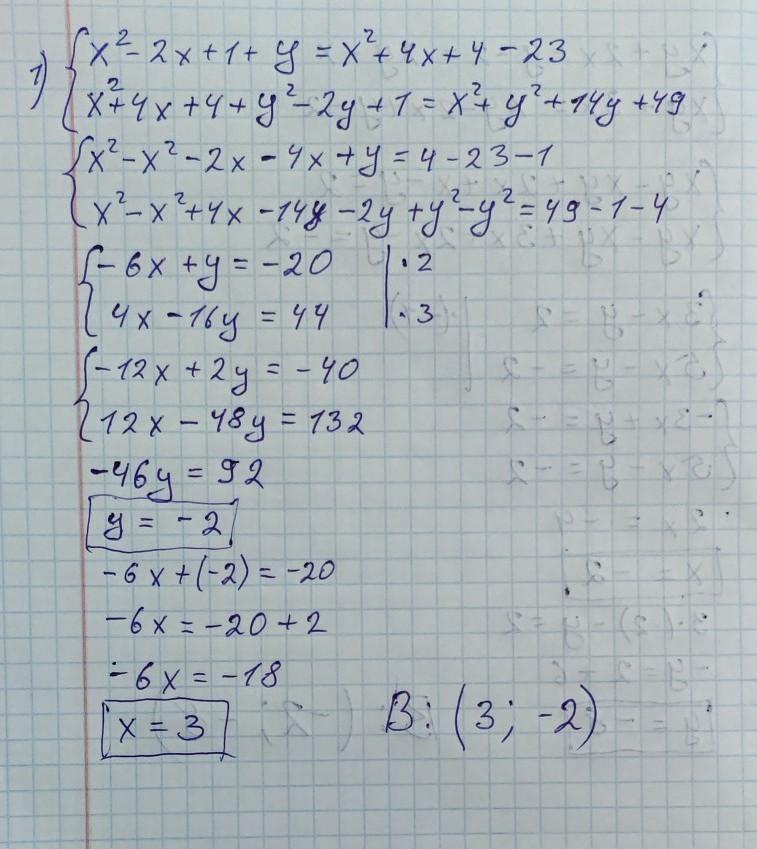 1) { x² - 2x + 1 + y = x² + 4x + 4 - 23
x² + 4x + 4 + y² - 2y + 1 = x² + y² + 14y + 49
{ x² - x² - 2x - 4x + y = 4 - 23 - 1
x² - x² + 4x - 14y - 2y + y² - y² = 49 - 1 - 4
{ - 6x + y = -20 | · 2
4x - 16y = 44 | · 3
{ -12x + 2y = -40
12x - 48y = 132
-46y = 92
y = -2
-6x + (-2) = -20
-6x = -20 + 2
-6x = -18
x = 3 В: (3; -2)